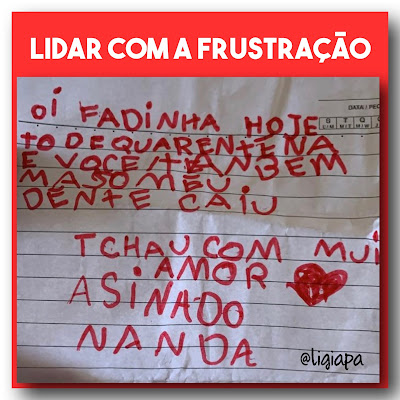 LIDAR COM A FRUSTRAÇÃO
OI FADINHA HOJE
TO DE QUARENTENA
E VOCE TANBEM
MASOMEU
DENTE CAIU
TCHAU COM MUI
AMOR
ASINADO
NANDA
@ligiapa